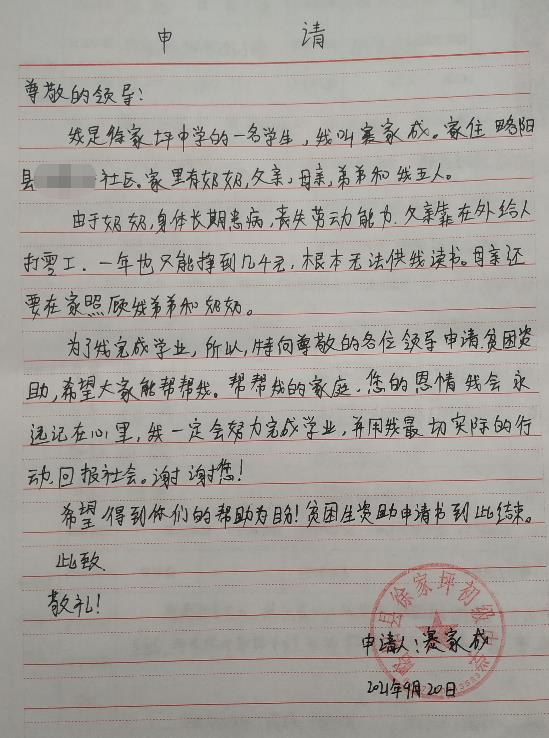 申 请
尊敬的领导:
我是徐家坪中学的一名学生,我叫蹇家成。家住略阳
县 社区。家里有奶奶,父亲,母亲,弟弟和我五人。
由于奶奶,身体长期患病,丧失劳动能力.父亲靠在外给人
打零工.一年也只能挣到几千元,根本无法供我读书。母亲还
要在家照顾我弟弟和奶奶。
为了我完成学业,所以,特向尊敬的各位领导申请贫困资
助,希望大家能帮帮我。帮帮我的家庭.您的恩情我会永
远记在心里,我一定会努力完成学业,并用我最切实际的行
动.回报社会。谢谢您!
希望得到你们的帮助为目的!贫困生资助申请书到此结束。
此致.
敬礼!
县徐家坪初级中学
申请人:蹇家成
2021年9月20日